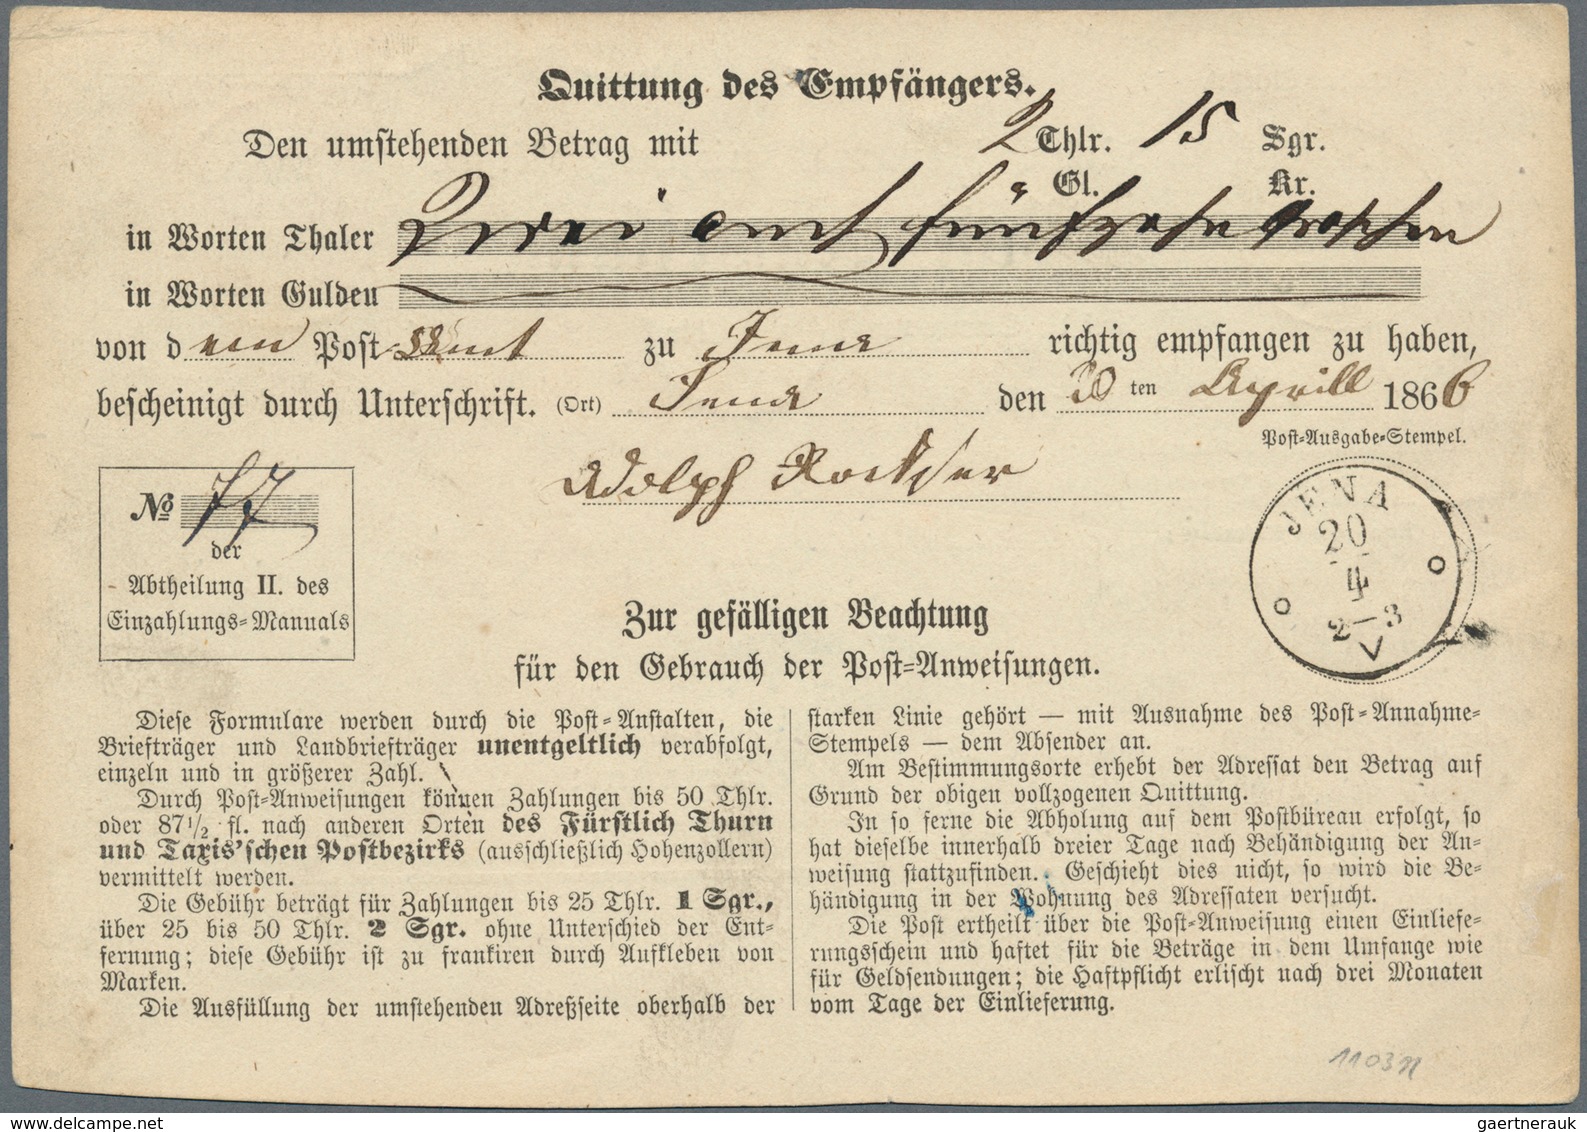 Quittung des Empfängers.
Den umstehenden Betrag mit 2 Thlr. 15 Sgr.
Gl. Kr.
in Worten Thaler Zwei und fünfzehn Groschen
in Worten Gulden
von dem Post-Amt zu Jena richtig empfangen zu haben,
bescheinigt durch Unterschrift. (Ort) Jena den 20 ten Aprill 1866
Post-Ausgabe-Stempel.
Adolph
№ 77
der
Abtheilung II. des
Einzahlungs-Manuals
JENA
20
4
2-3
Zur gefälligen Beachtung
für den Gebrauch der Post-Anweisungen.
Diese Formulare werden durch die Post-Anstalten, die
Briefträger und Landbriefträger unentgeltlich verabfolgt,
einzeln und in größerer Zahl.
Durch Post-Anweisungen können Zahlungen bis 50 Thlr.
oder 87 1/2 fl. nach anderen Orten des Fürstlich Thurn
und Taxis'schen Postbezirks (ausschließlich Hohenzollern)
vermittelt werden.
Die Gebühr beträgt für Zahlungen bis 25 Thlr. 1 Sgr.,
über 25 bis 50 Thlr. 2 Sgr. ohne Unterschied der Ent-
fernung; diese Gebühr ist zu frankiren durch Aufkleben von
Marken.
Die Ausfüllung der umstehenden Adreßseite oberhalb der
starken Linie gehört — mit Ausnahme des Post-Annahme-
Stempels — dem Absender an.
Am Bestimmungsorte erhebt der Adressat den Betrag auf
Grund der obigen vollzogenen Quittung.
In so ferne die Abholung auf dem Postbüreau erfolgt, so
hat dieselbe innerhalb dreier Tage nach Behändigung der An-
weisung stattzufinden. Geschieht dies nicht, so wird die Be-
händigung in der Wohnung des Adressaten versucht.
Die Post ertheilt über die Post-Anweisung einen Einliefe-
rungsschein und haftet für die Beträge in dem Umfange wie
für Geldsendungen; die Haftpflicht erlischt nach drei Monaten
vom Tage der Einlieferung.
gaertnerauk